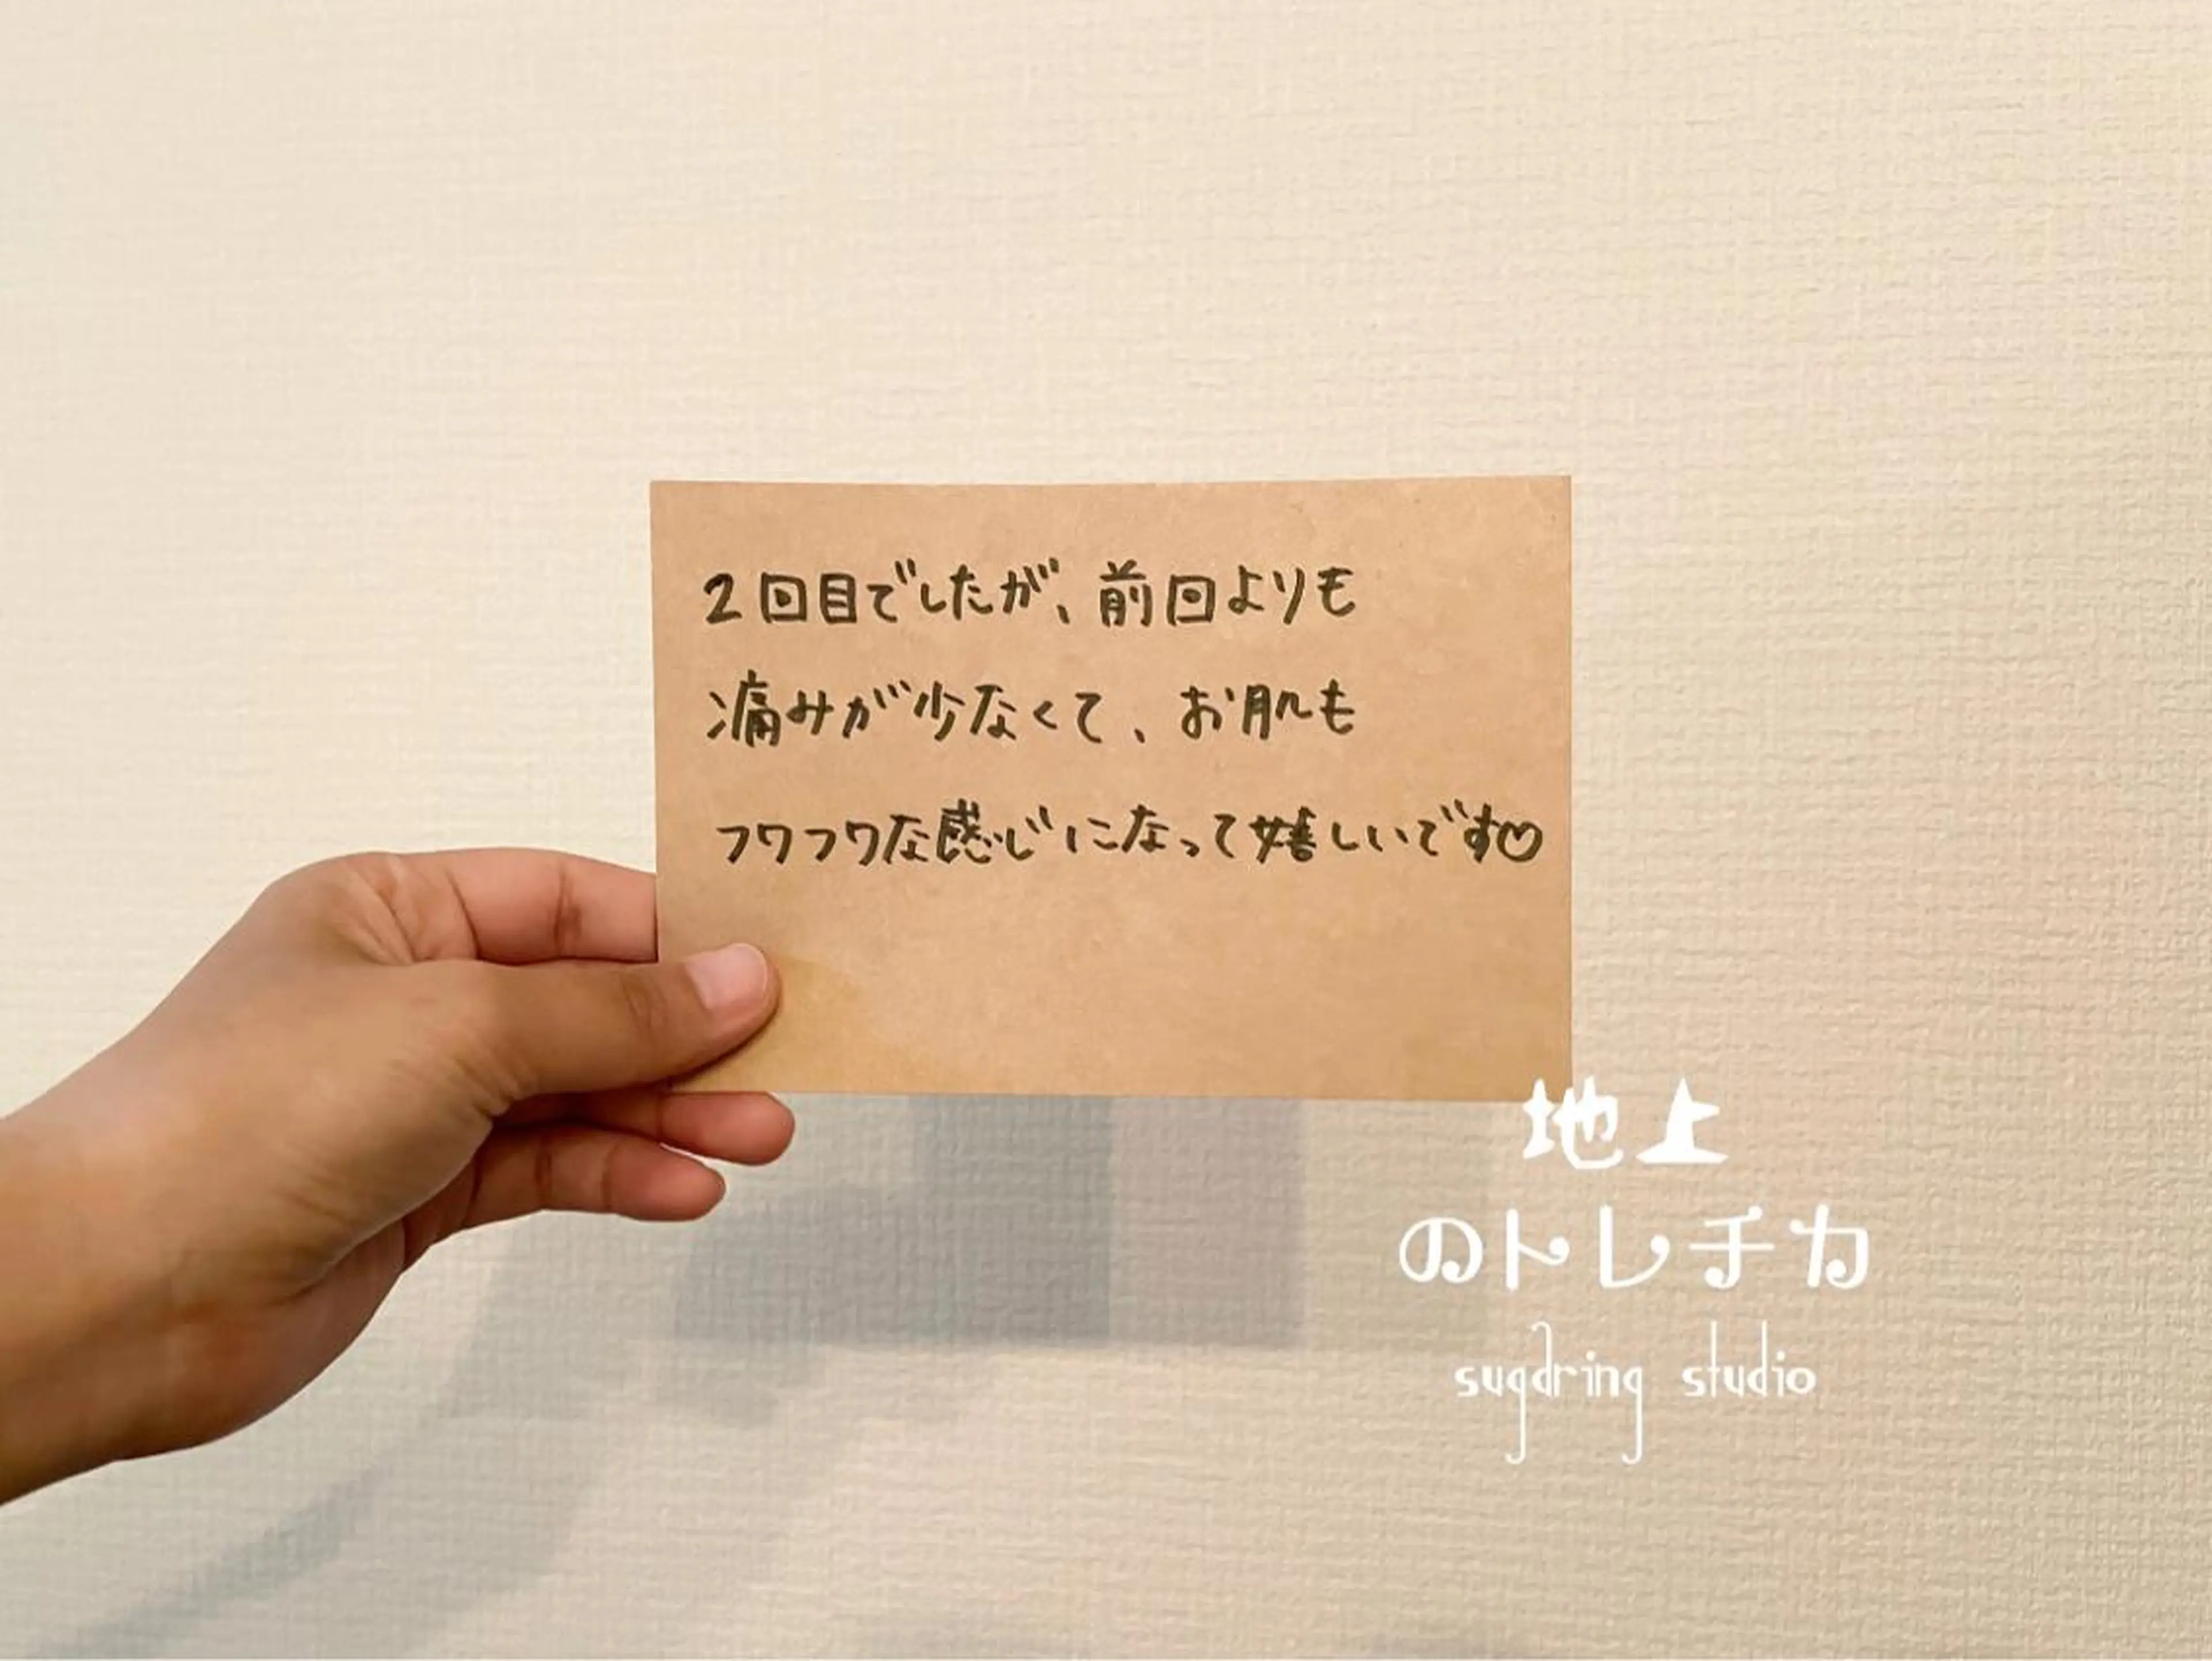 2回目でしたが、前回よりも
痛みが少なくて、お肌も
フワフワな感じになって嬉しいです♡
地上
のトレチカ
sugaring studio